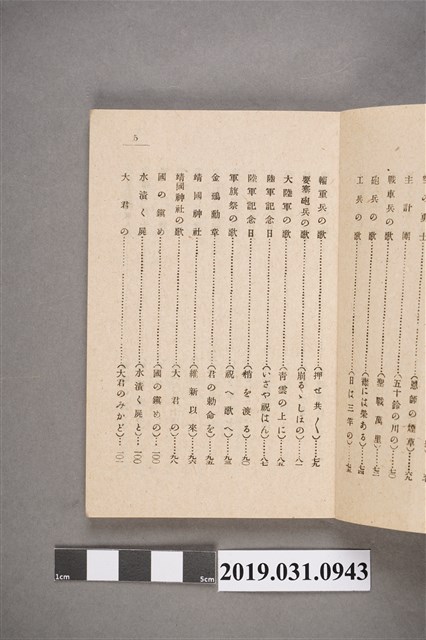 主計團………（五十鈴の川の）…六九
戰車兵の歌………（聖戰萬里）…七三
砲兵の歌………（龍には榮ある）…七四
工兵の歌………（日は三竿の）…七五
輜重兵の歌………（押せ共〱）…七九
要塞砲兵の歌………（崩るゝしほの）…八一
大陸軍の歌………（青雲の上に）…八五
陸軍記念日………（いざや祝はん）…八七
陸軍記念日………（楯を渡る）…九〇
軍旗祭の歌………（祝へ歌へ）…九二
金鵄勳章………（君の勅命を）…九五
靖國神社………（維新以來）…九六
靖國神社の歌………（大君の）…九八
國の鎭め………（國の鎭めの）…一〇〇
水漬く屍………（水漬く屍と）…一〇〇
大君の………（大君のみかど）…一〇一
5
1cm
5cm
2019.031.0943